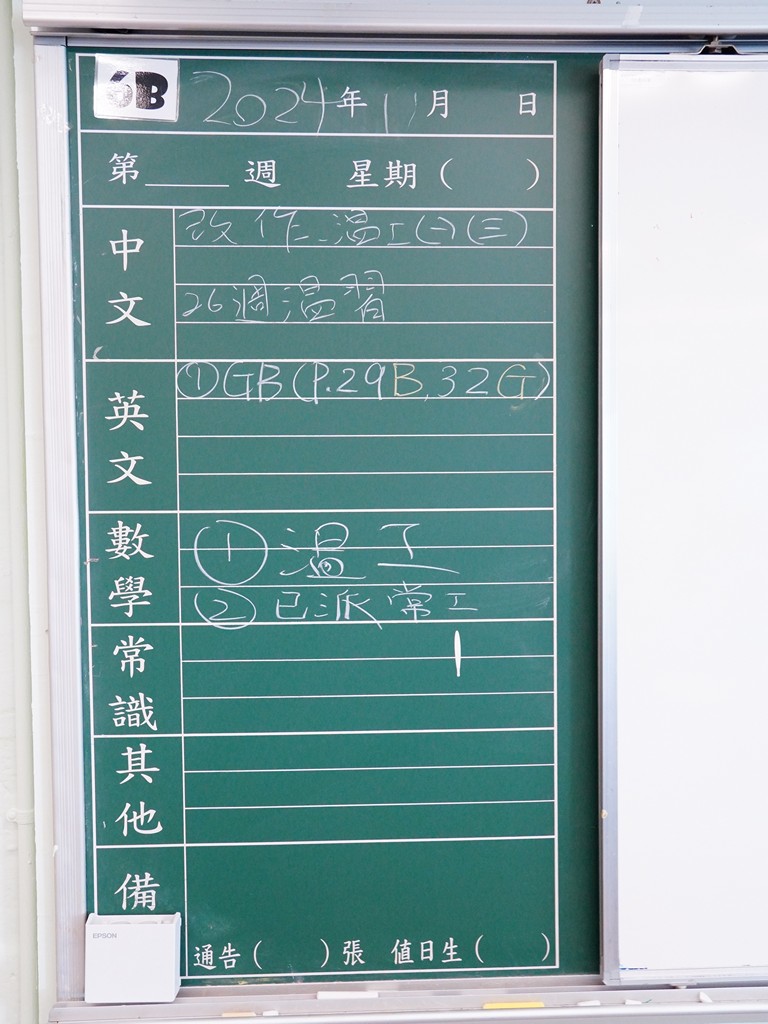 6B 2024年11月 日
第____週 星期( )
中文
改作、溫工(一)(三)
26週溫習
英文
①GB(P.29B,32G)
數學
①溫工
②已派常工
常識
其他
備
EPSON
通告( )張 值日生( )